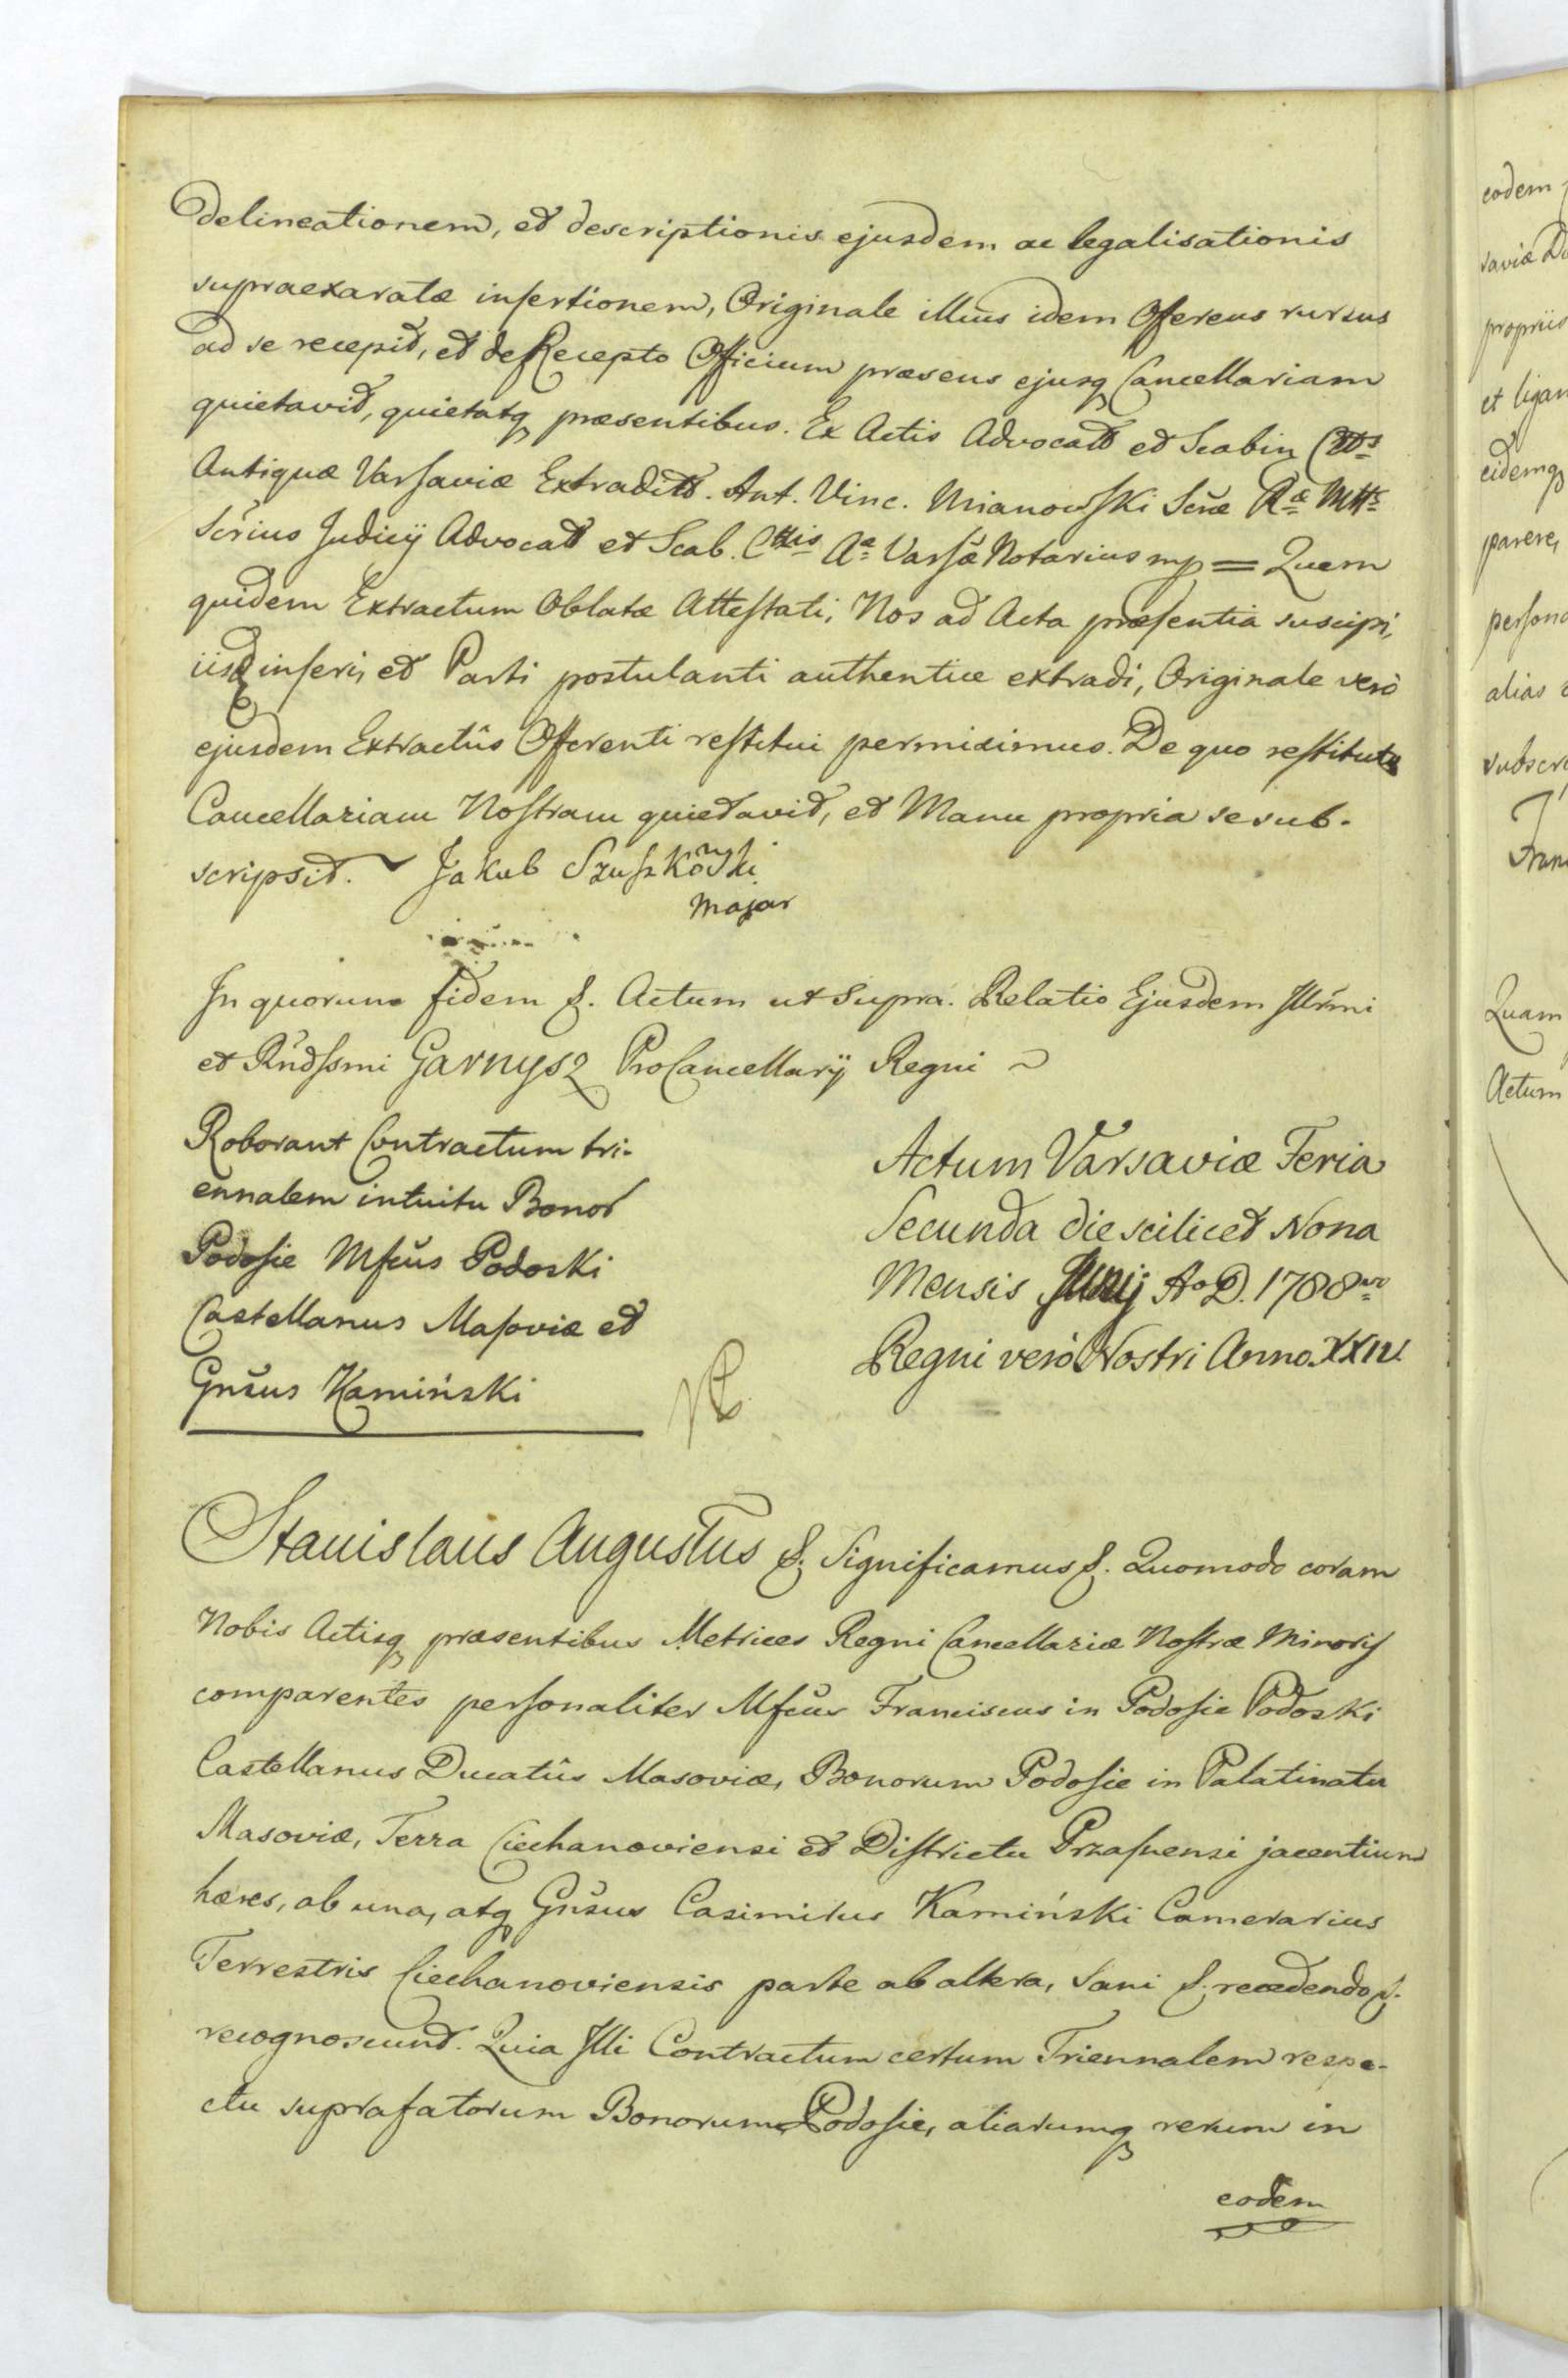 delineationem, et descriptionis ejusdem ac legalisationis
supraexaratæ insertionem, Originale illius idem Offerens rursus
ad se recepit, et de Recepto Officium præsens ejusq Cancellariam
quietavit, quietatq præsentibus. Ex Actis Advocatt et Scabin Ctts
Antiquæ Varsaviæ Extraditt. Ant. Vinc. Mianowski Scræ Ræ Mtts
Scrius Judicij Advocatt et Scab. Cttis Aæ Varsæ Notarius mp = Quem
quidem Extractum Oblatæ Attestati, Nos ad Acta præsentia suscipi,
iisq inseri, et Parti postulanti authentice extradi, Originale verò
ejusdem Extractûs Offerenti restitui permisimus. De quo restituto
Cancellariam Nostram quietavit, et Manu propria se sub-
scripsit. Jakub Szuszkowski
Major
In quorum fidem &. Actum ut Supra. Relatio Ejusdem Illrmi
et Rndssmi Garnysz ProCancellarij Regni
Roborant Contractum tri-
ennalem intuitu Bonor
Podosie Mfcus Podoski
Castellanus Masoviæ et
Gnsus Kamiński
Actum Varsaviæ Feria
Secunda die scilicet Nona
Mensis Junij Ao D. 1788vo
Regni verò Nostri Anno XXIV.
Stanislaus Augustus &. Significamus &. Quomodo coram
Nobis Actisq præsentibus Metrices Regni Cancellariæ Nostræ Minoris
comparentes personaliter Mfcus Franciscus in Podosie Podoski
Castellanus Ducatûs Masoviæ, Bonorum Podosie in Palatinatu
Masoviæ, Terra Ciechanoviensi et Districtu Przasnensi jacentium
hæres, ab una, atq Gnsus Casimirus Kamiński Camerarius
Terrestris Ciechanoviensis parte ab altera, Sani &. recedendo &.
recognoscunt. Quia Illi Contractum certum Triennalem respe-
ctu suprafatorum Bonorum Podosie, aliarumq rerum in
eodem
eodem
saviæ
propriis
et ligan
eidemq
parere,
person
alias
subscri
Fran
Quam
Actum